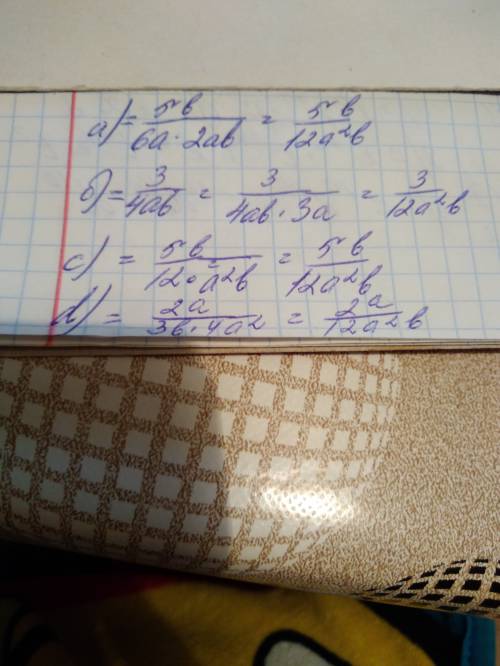 a) = 5b/(6a · 2ab) = 5b/(12a²b)
б) = 3/(4ab) = 3/(4ab · 3a) = 3/(12a²b)
c) = 5b/(12 · a²b) = 5b/(12a²b)
d) = 2a/(3b · 4a²) = 2a/(12a²b)